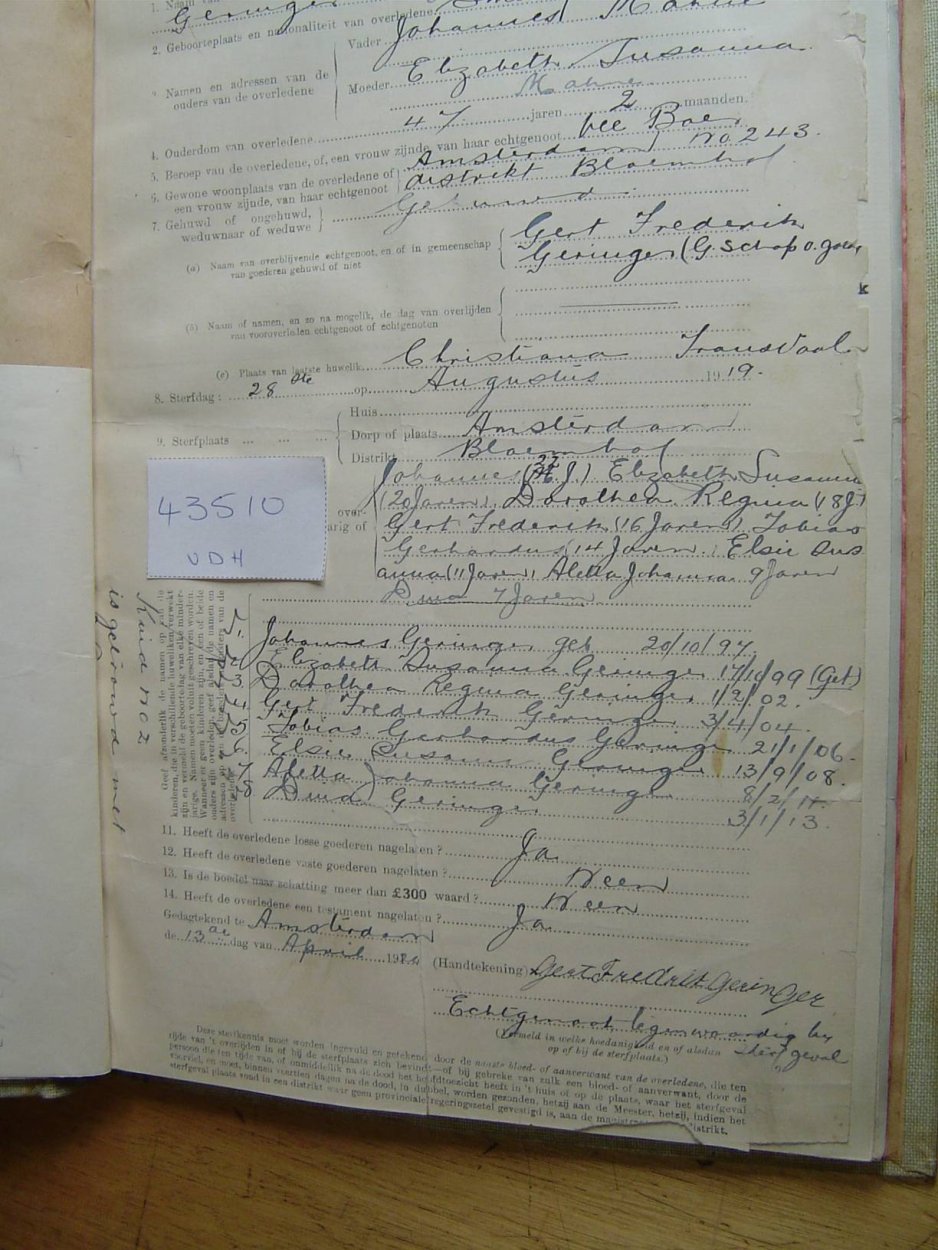 Geringer
2. Geboorteplaats en nationaliteit van overledene
3. Namen en adressen van de ouders van de overledene
Vader Johannes
Moeder Elizabeth Susanna
4. Ouderdom van overledene 47 jaren 2 maanden.
5. Beroep van de overledene, of, een vrouw zijnde, van haar echtgenoot Boer
6. Gewone woonplaats van de overledene of een vrouw zijnde, van haar echtgenoot
Amsterdam No 243.
distrikt Bloemhof
7. Gehuwd of ongehuwd, weduwnaar of weduwe
Gehuwd
(a) Naam van overblijvende echtgenoot, en of in gemeenschap van goederen gehuwd of niet
Gert Frederik
Geringer (G. schap o. goed
(b) Naam of namen, en zo na mogelik, de dag van overlijden van vooroverleden echtgenoot of echtgenoten
(c) Plaats van laatste huwelik Christiana Transvaal
8. Sterfdag: 28ste op Augustus 1919.
9. Sterfplaats
Huis
Dorp of plaats Amsterdam
Distrikt Bloemhof
43510
VDH
Johannes (22 J.) Elizabeth Susanna
(20 Jaren), Dorothea Regina (18 J)
Gert Frederik (16 Jaren), Tobias
Gerhardus (14 Jaren), Elsie Sus
anna (11 Jaren), Aletta Johanna 9 Jaren
7 Jaren
Johannes Geringer geb 20/10/97.
2. Elizabeth Susanna Geringer 17/10/99 (Get)
3. Dorothea Regina Geringer 1/2/02.
4. Gert Frederik Geringer 3/4/04.
5. Tobias Gerhardus Geringer 21/1/06.
6. Elsie Susanna Geringer 13/9/08.
7. Aletta Johanna Geringer 8/2/11.
8. Geringer 3/1/13.
Kind No 2
is getrouwd met
11. Heeft de overledene losse goederen nagelaten? Ja
12. Heeft de overledene vaste goederen nagelaten? Neen
13. Is de boedel naar schatting meer dan £300 waard? Neen
14. Heeft de overledene een testament nagelaten? Ja
Gedagtekend te Amsterdam
de 13de dag van April 1920
(Handtekening) Gert Fredrik Geringer
Echtgenoot tegenwoordig by
sterfgeval
(Vermeld in welke hoedanigheid en of aldaan
op of bij de sterfplaats.)
Deze sterfkennis moet worden ingevuld en getekend door de naaste bloed- of aanverwant van de overledene, die ten
tijde van 't overlijden in of bij de sterfplaats zich bevindt—of bij gebreke van zulk een bloed- of aanverwant, door de
persoon die ten tijde van, of onmiddellik na de dood het hoofdtoezicht heeft in 't huis of op de plaats, waar het sterfgeval
voorviel, en moet, binnen veertien dagen na de dood, in dubbel, worden gezonden, hetzij aan de Meester, hetzij, indien het
sterfgeval plaats vond in een distrikt waar geen provinciale regeringszetel gevestigd is, aan de distrikt.